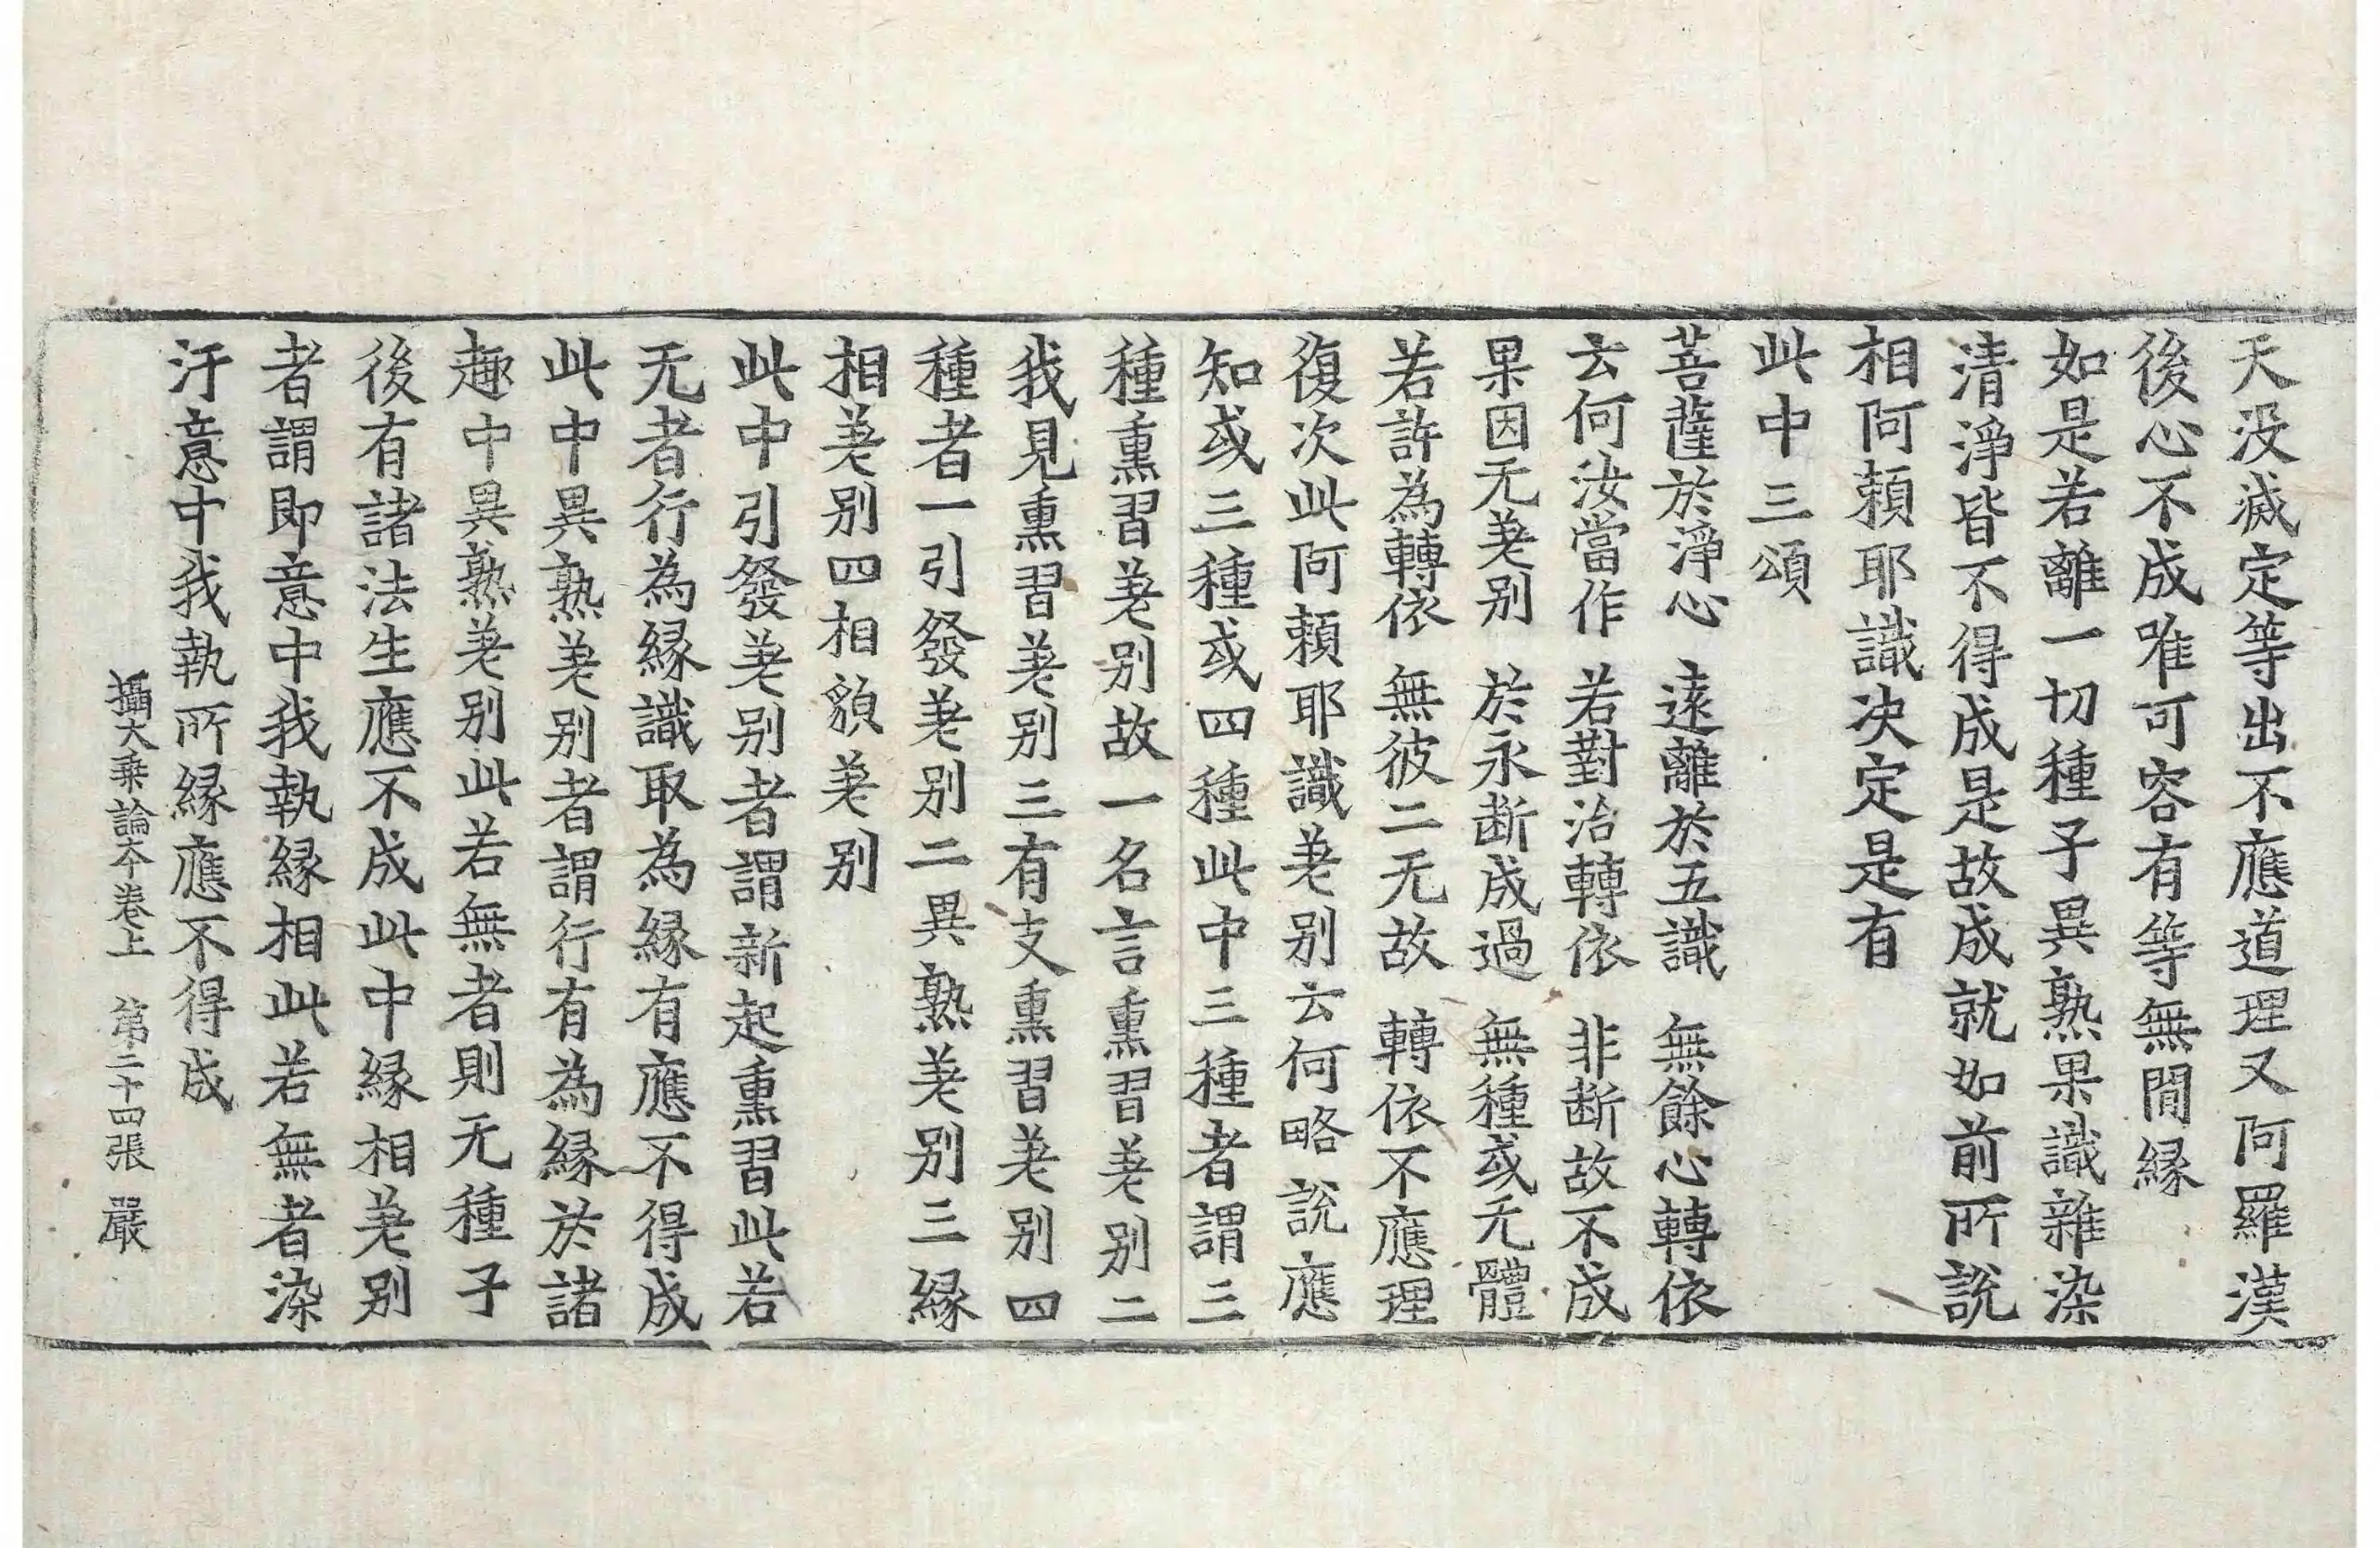 天没滅定等出不應道理又阿羅漢
後心不成唯可容有等無間縁
如是若離一切種子異熟果識雜染
清淨皆不得成是故成就如前所說
相阿頼耶識决定是有
此中三頌
菩薩於淨心　遠離於五識　無餘心轉依
云何汝當作　若對治轉依　非断故不成
果因无差别　於永断成過　無種或无體
若許為轉依　無彼二无故　轉依不應理
復次此阿頼耶識差别云何略說應
知或三種或四種此中三種者謂三
種熏習差别故一名言熏習差别二
我見熏習差别三有支熏習差别四
種者一引發差别二異熟差别三縁
相差别四相貌差别
此中引發差别者謂新起熏習此若
无者行為縁識取為縁有應不得成
此中異熟差别者謂行有為縁於諸
趣中異熟差别此若無者則无種子
後有諸法生應不成此中縁相差别
者謂即意中我執縁相此若無者染
汙意中我執所縁應不得成
攝大乘論本卷上　第二十四張　嚴